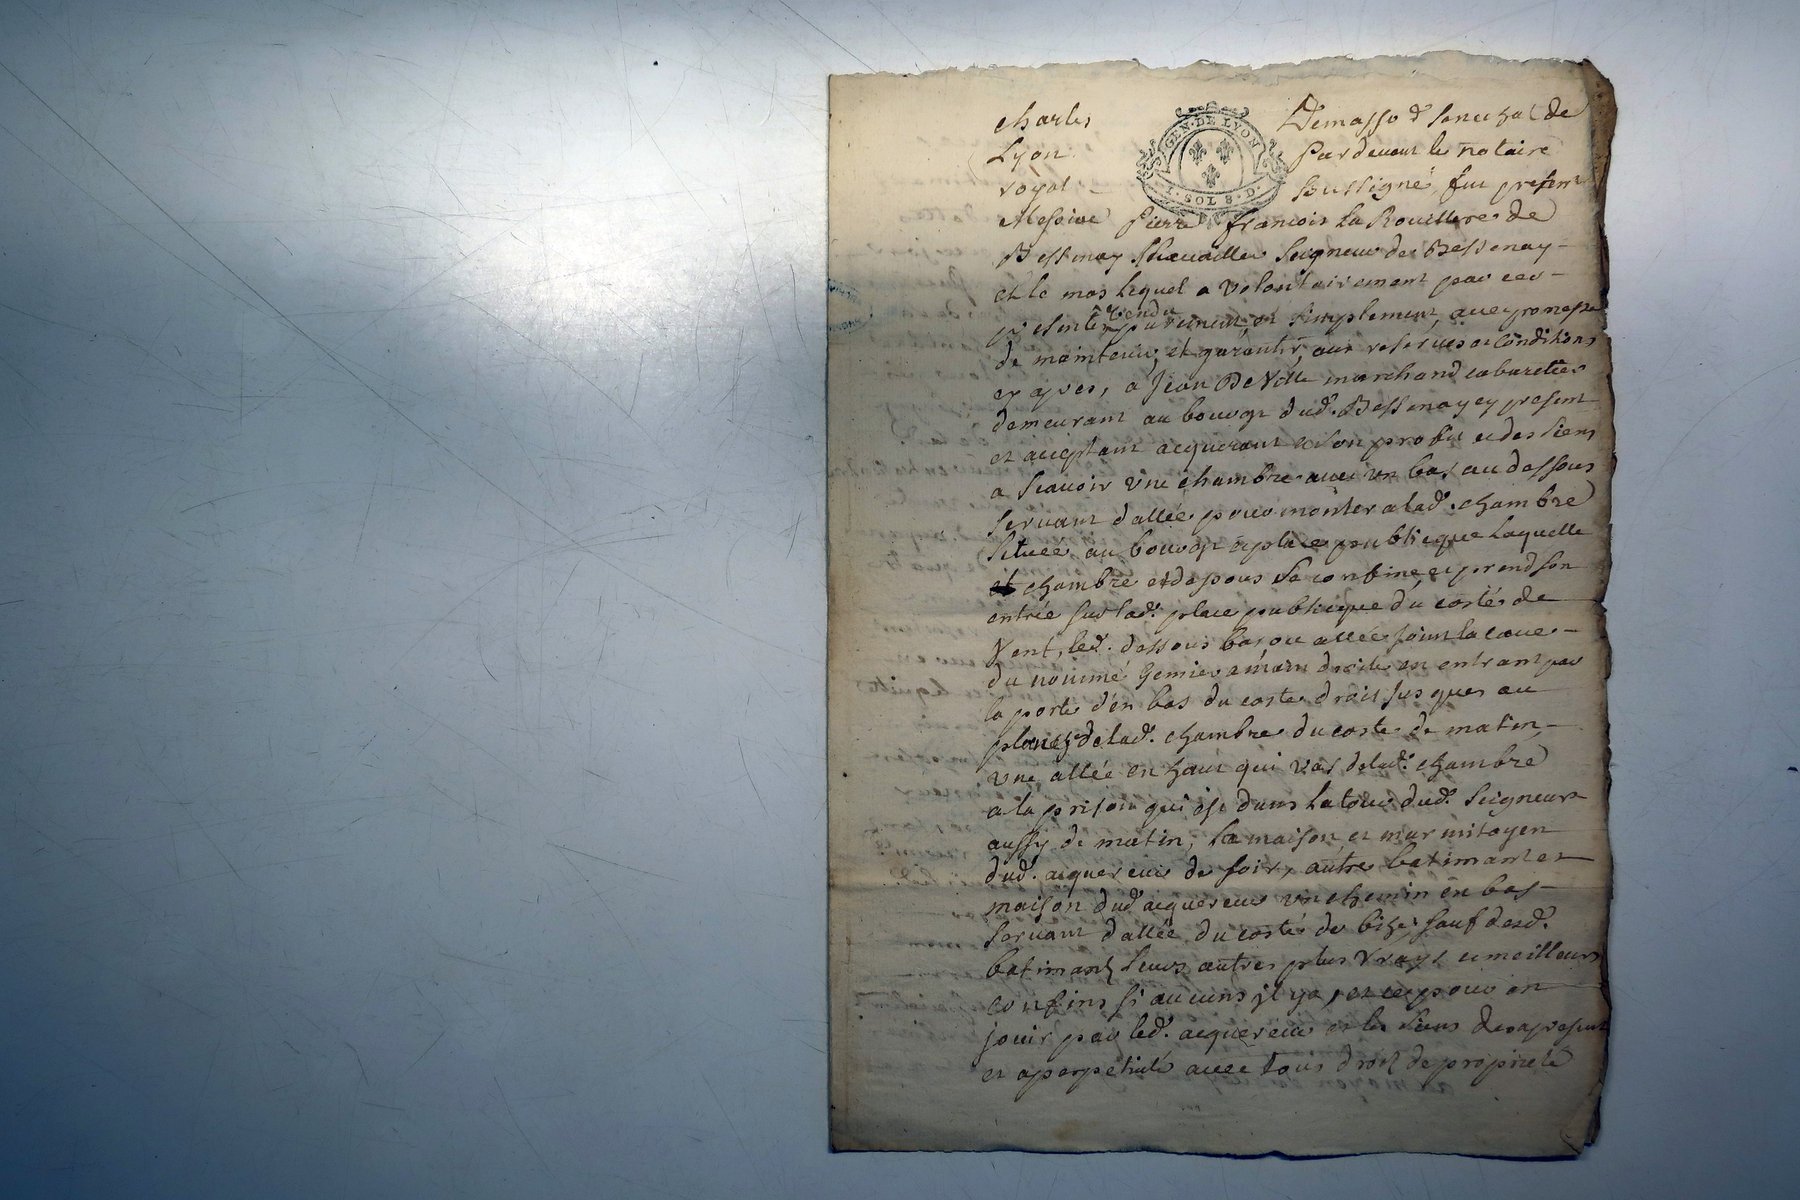 Charles Demasso d Senechal de
GEN. DE LYON
Lyon Pardevant le notaire
royal Sussigné fut present
1. SOL 8. D.
Messire Pierre francois La Rouillere de
Bessenay Chevallier Seigneur de Bessenay
et le mas lequel a volontairement par ces
presentes vendu purement et simplement, avec promesse
de maintenir, et garantir, aux reserves et conditions
cy apres, a Jean DeVille marchand cabaretier
demeurant au bourg dud. Bessenay cy present
et aiceptant acquerant a son profit et des siens
a scavoir une chambre avec un bas au dessous
servant d'allée pour monter a lad. chambre
située au bourg et place publicque laquelle
chambre et dessous se confine, et prend son
entrée sur lad. place publicque du costés de
vent, led. dessous bas ou allée joint la cave
du nommé a main droite en entrant par
la porte d'en bas du coste droit jusques au
de lad. chambre du coste de matin,
une allée en haut qui vas de lad. chambre
a la prison qui est dans la tour dud. Seigneur
aussy de matin, la maison et mur mitoyen
dud. aiquereur de soir, autre batimant et
maison dud. aiquereur un chemin en bas
servant d'allée du costé de bize, sauf desd.
batimants leurs autres plus vrays et meilleurs
confins si aucuns jl y a, et ce pour en
jouir par led. acquereur et les siens des a present
et a perpetuité avec tous droit de proprieté